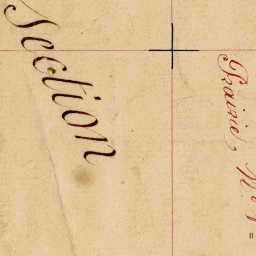 Section
Prairie, No 1
=